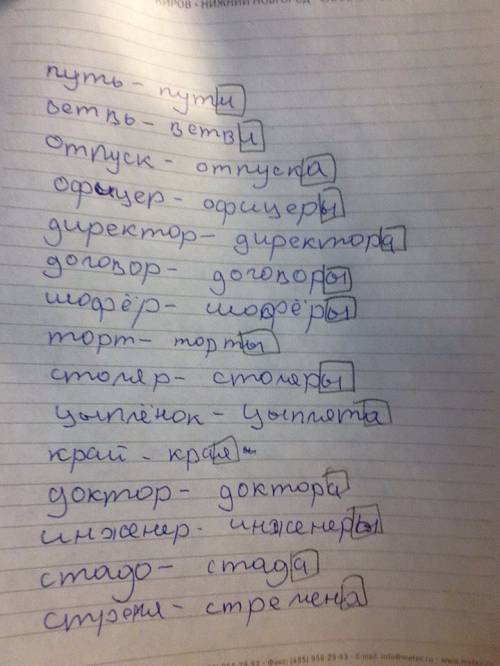 КИРОВ - НИЖНИЙ НОВГОРОД
путь - пути
ветвь - ветви
отпуск - отпуска
офицер - офицеры
директор - директора
договор - договоры
шофёр - шофёры
торт - торты
столяр - столяры
цыплёнок - цыплята
край - края
доктор - доктора
инженер - инженеры
стадо - стада
стремя - стремена
Факс: (495) 956-29-93 E-mail: info@